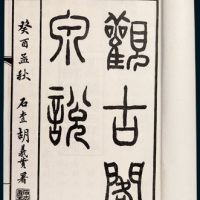 觀古閣
泉說
癸酉孟秋 石查胡義贊署